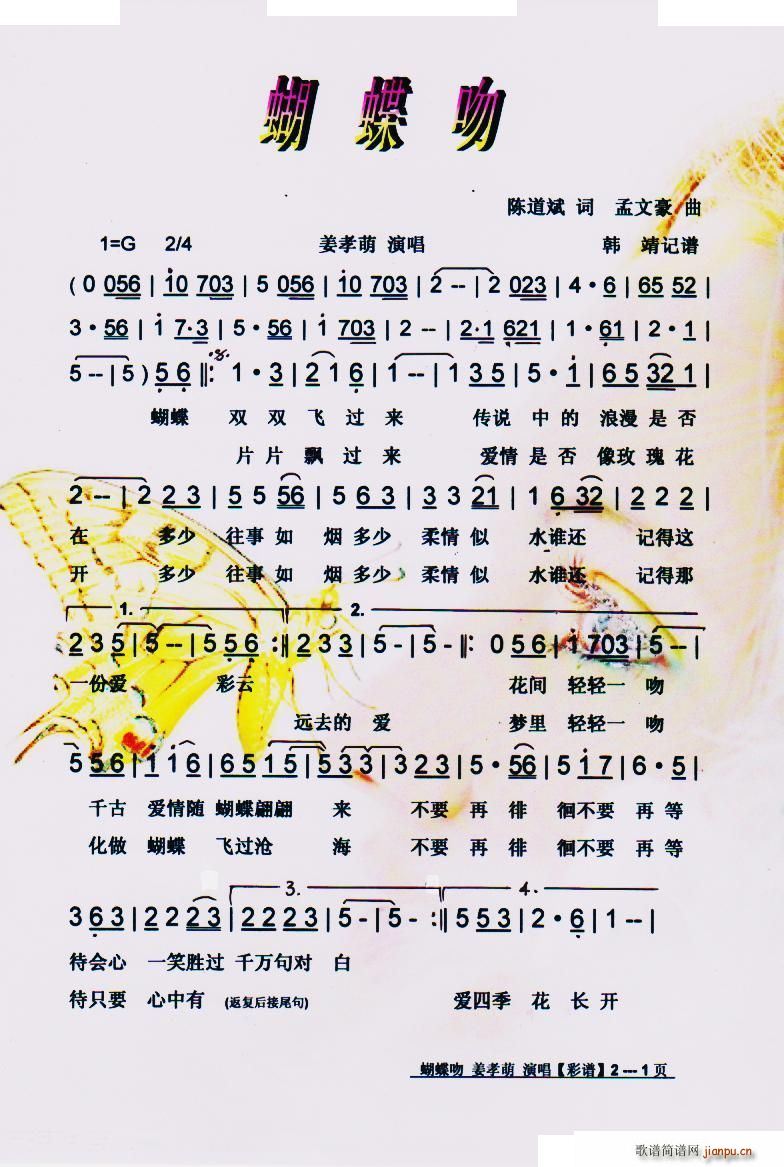 蝴蝶吻
陈道斌 词 孟文豪 曲
1=G 2/4 姜孝萌 演唱 韩 靖记谱
(0 056 | i0 703 | 5 056 | i0 703 | 2 -- | 2 023 | 4 · 6 | 65 52 |
3 · 56 | i 7·3 | 5 · 56 | i 703 | 2 -- | 2·1 621 | 1 · 61 | 2 · 1 |
5 -- | 5 ) 5 6 ‖: 1 · 3 | 2 1 6 | 1 -- | 1 3 5 | 5 · i | 6 5 32 1 |
蝴蝶 双 双 飞 过 来 传说 中 的 浪漫 是 否
片 片 飘 过 来 爱情 是 否 像玫 瑰 花
2 -- | 2 2 3 | 5 5 56 | 5 6 3 | 3 3 21 | 1 6 32 | 2 2 2 |
在 多少 往事 如 烟 多少 柔情 似 水谁还 记得这
开 多少 往事 如 烟 多少 柔情 似 水谁还 记得那
1. 2.
2 3 5 | 5 -- | 5 5 6 :‖ 2 3 3 | 5 - | 5 - ‖: 0 5 6 | i 703 | 5 -- |
一份爱 彩云 花间 轻轻一 吻
远去的 爱 梦里 轻轻一 吻
5 5 6 | i i 6 | 6 5 i 5 | 5 3 3 | 3 2 3 | 5 · 56 | 5 i 7 | 6 · 5 |
千古 爱情随 蝴蝶翩翩 来 不要 再 徘 徊不要 再 等
化做 蝴蝶 飞过沧 海 不要 再 徘 徊不要 再 等
3. 4.
3 6 3 | 2 2 2 3 | 2 2 2 3 | 5 - | 5 - :‖ 5 5 3 | 2 · 6 | 1 -- |
待会心 一笑胜过 千万句对 白
待只要 心中有 (返复后接尾句) 爱四季 花 长 开
蝴蝶吻 姜孝萌 演唱【彩谱】2 --- 1 页
歌谱简谱网 jianpu.cn